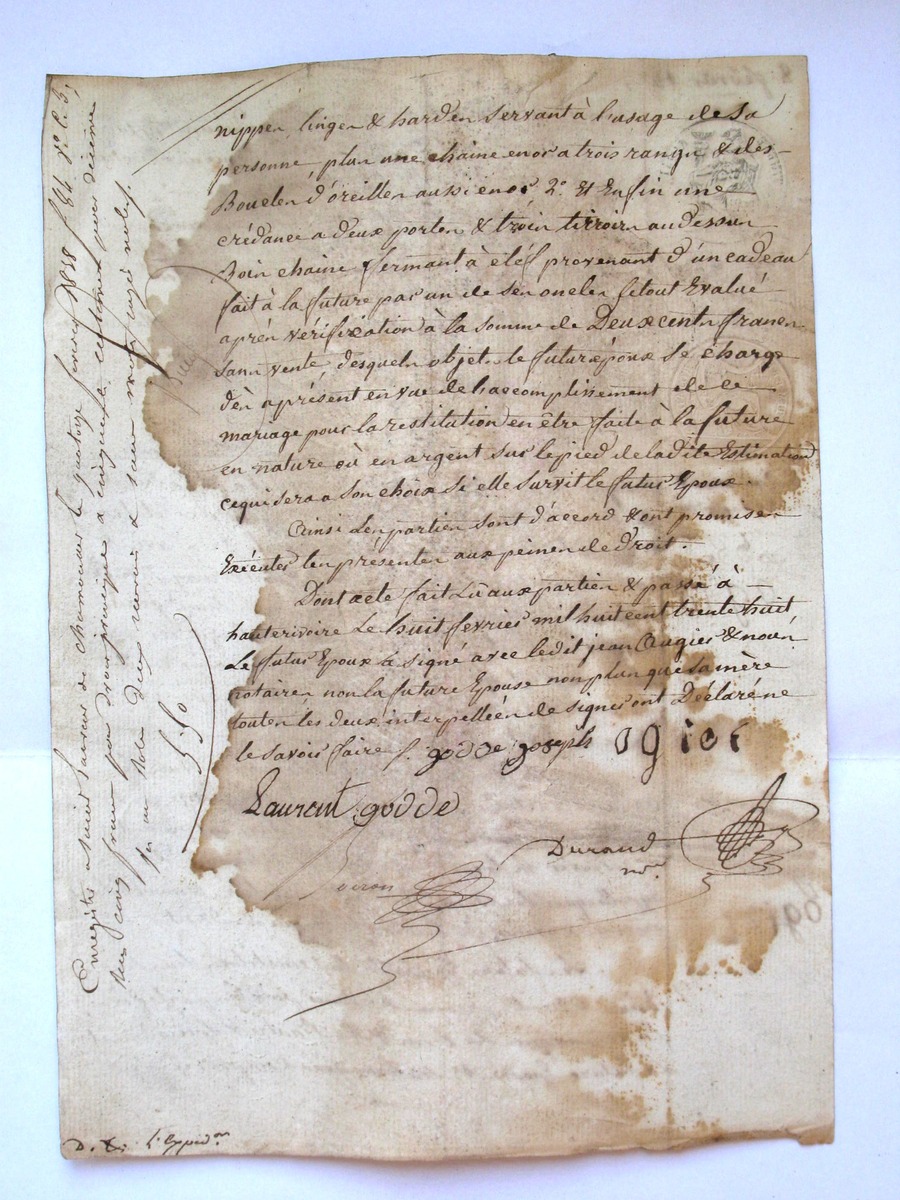 nippes, linges & hardes servant à l'usage de sa
personne, plus une chaine en or a trois rangs & des
Boucles d'oreilles aussi en or 2.º Et Enfin une
crédance a deux portes & trois tirroirs au dessus
Bois chaine fermant à clef provenant d'un cadeau
fait à la future par un de ses oncles le tout Evalué
après vérification à la somme de Deux cents francs
sans vente desquels objets le futur époux se charge
dès aprésent en vue de l'accomplissement de ce
mariage pour la restitution en être faite à la future
en nature où en argent sur le pied de ladite Estimation
ce qui sera a son choix si elle survit le futur Epoux.
Ainsi les parties sont d'accord & ont promis
Exécuter les présentes aux peines de droit.
Dont acte fait Lû aux parties & passé à
hauterivoire Le huit fevrier mil huit cent trente huit
Le futur Epoux a signé avec ledit jean Augier & nous
notaires non la future Epouse non plus que sa mère
toutes les deux interpellées de signer ont Déclaré ne
le savoir faire /. godde joseph ogier
Laurent godde
Durand
nre.
Enregistré a Saint Laurent de Chamousset le quatorze fevrier 1838 fº 84 Vº C. 3,
Reçu cinq francs pour droit principal & cinquante centimes pour décime
5,50
D. & L'Expedon